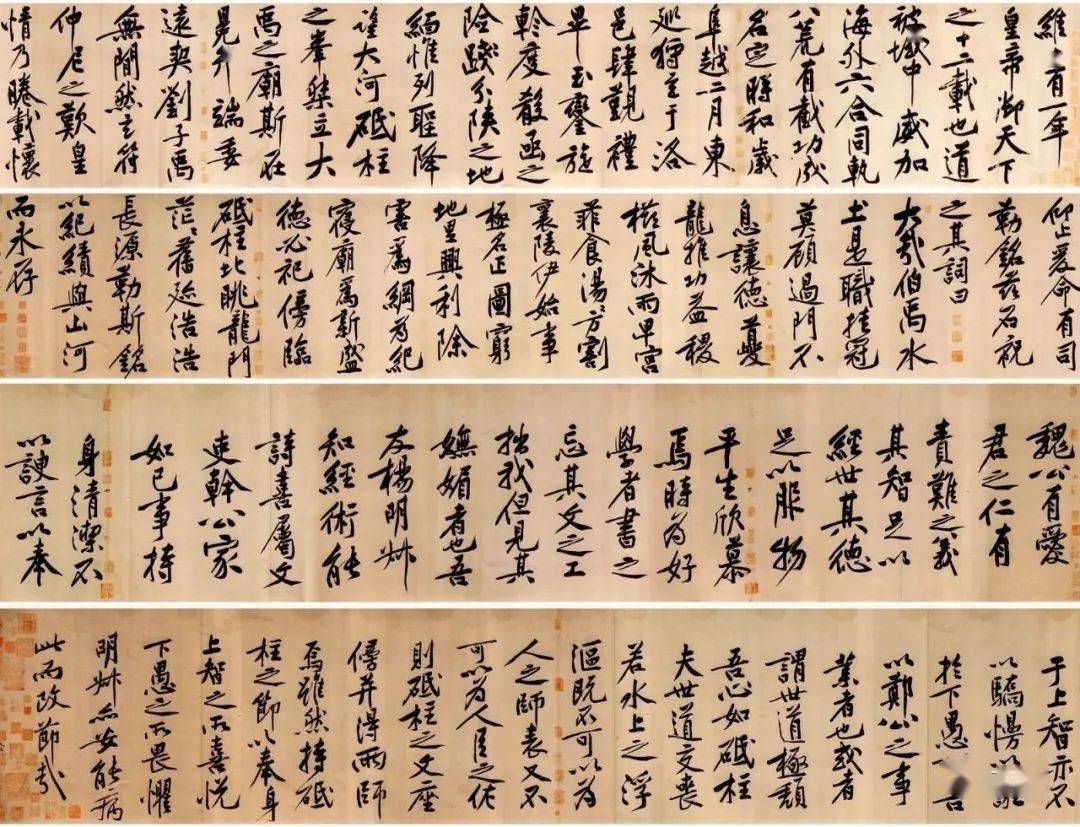 維有一年
皇帝御天下
之十二載也道
被域中威加
海外六合同軌
八荒有截功成
名定時和歲
阜越二月東
巡狩至于洛
邑肆覲禮
畢玉鑾旋
軫度殽函之
險踐分陝之地
緬惟列聖降
望大河砥柱
之峯桀立大
禹之廟斯在
冕弁端委
遠契劉子禹
無間然玄符
仲尼之歎皇
情乃睠載懷
仰止爰命有司
勒銘茲石祝
之其詞曰
大哉伯禹水
土是職挂冠
莫顧過門不
息讓德夔
龍推功益稷
櫛風沐雨卑宮
菲食湯湯方割
襄陵伊始事
極名正圖窮
地里興利除
害為綱為紀
寢廟為新盛
德必祀傍臨
砥柱北眺龍門
茫茫舊迹浩浩
長源勒斯銘
以紀績與山河
而永存
魏公有愛
君之仁有
責難之義
其智足以
經世其德
足以服物
平生欣慕
焉時為好
學者書之
忘其文之工
拙我但見其
嫵媚者也吾
友楊明叔
知經術能
詩喜屬文
吏幹公家
如己事持
身清潔不
以諛言以奉
于上智亦不
以驕慢以
於下愚
以鄭公之事
業者也或者
謂世道極頹
吾心如砥柱
夫世道交喪
若水上之浮
漚既不可以為
人之師表又不
可以為人臣之佐
則砥柱之文座
傍并得兩師
焉雖然持砥
柱之節以奉身
上智之所喜悅
下愚之所畏懼
明叔亦安能病
此而改節哉